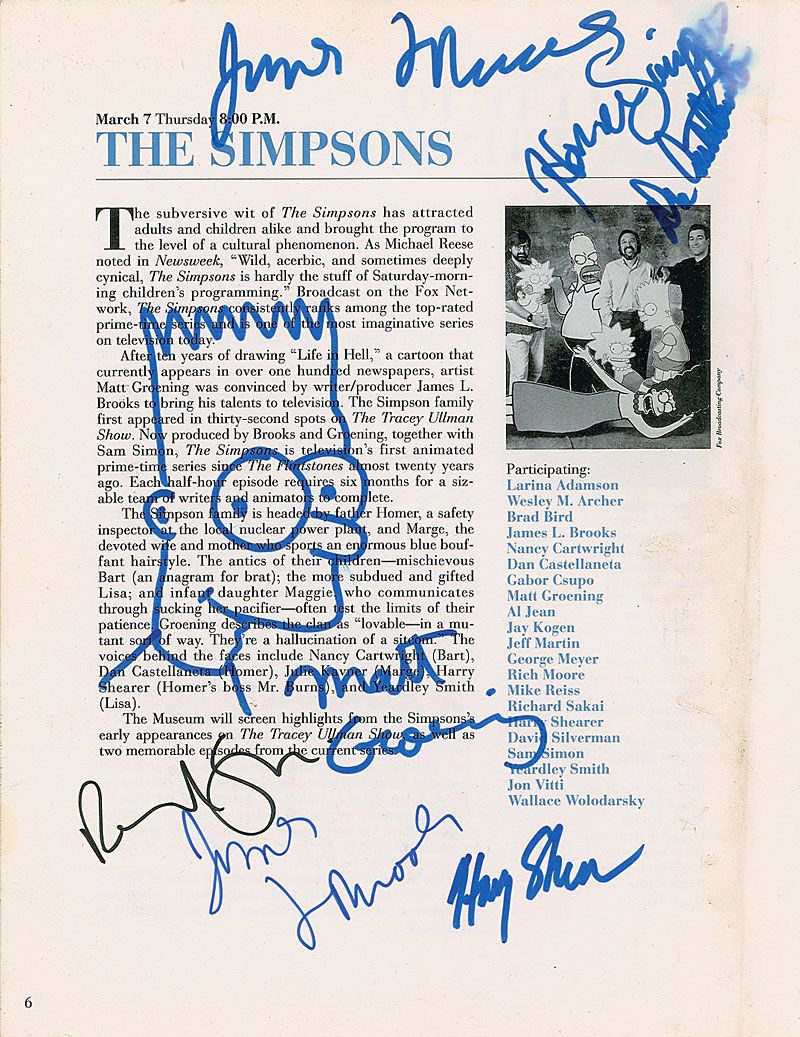 James L Brooks
Homer Simpson
Dan Castellaneta
March 7 Thursday 8:00 P.M.
THE SIMPSONS
The subversive wit of The Simpsons has attracted
adults and children alike and brought the program to
the level of a cultural phenomenon. As Michael Reese
noted in Newsweek, “Wild, acerbic, and sometimes deeply
cynical, The Simpsons is hardly the stuff of Saturday-morn-
ing children’s programming.” Broadcast on the Fox Net-
work, The Simpsons consistently ranks among the top-rated
prime-time series and is one of the most imaginative series
on television today.
After ten years of drawing “Life in Hell,” a cartoon that
currently appears in over one hundred newspapers, artist
Matt Groening was convinced by writer/producer James L.
Brooks to bring his talents to television. The Simpson family
first appeared in thirty-second spots on The Tracey Ullman
Show. Now produced by Brooks and Groening, together with
Sam Simon, The Simpsons is television’s first animated
prime-time series since The Flintstones almost twenty years
ago. Each half-hour episode requires six months for a siz-
able team of writers and animators to complete.
The Simpson family is headed by father Homer, a safety
inspector at the local nuclear power plant, and Marge, the
devoted wife and mother who sports an enormous blue bouf-
fant hairstyle. The antics of their children—mischievous
Bart (an anagram for brat); the more subdued and gifted
Lisa; and infant daughter Maggie, who communicates
through sucking her pacifier—often test the limits of their
patience. Groening describes the clan as “lovable—in a mu-
tant sort of way. They’re a hallucination of a sitcom.” The
voices behind the faces include Nancy Cartwright (Bart),
Dan Castellaneta (Homer), Julie Kavner (Marge), Harry
Shearer (Homer’s boss Mr. Burns), and Yeardley Smith
(Lisa).
The Museum will screen highlights from the Simpsons’s
early appearances on The Tracey Ullman Show, as well as
two memorable episodes from the current series.
Fox Broadcasting Company
Participating:
Larina Adamson
Wesley M. Archer
Brad Bird
James L. Brooks
Nancy Cartwright
Dan Castellaneta
Gabor Csupo
Matt Groening
Al Jean
Jay Kogen
Jeff Martin
George Meyer
Rich Moore
Mike Reiss
Richard Sakai
Harry Shearer
David Silverman
Sam Simon
Yeardley Smith
Jon Vitti
Wallace Wolodarsky
Matt
Groening
James
L Brooks
Harry Shearer
6